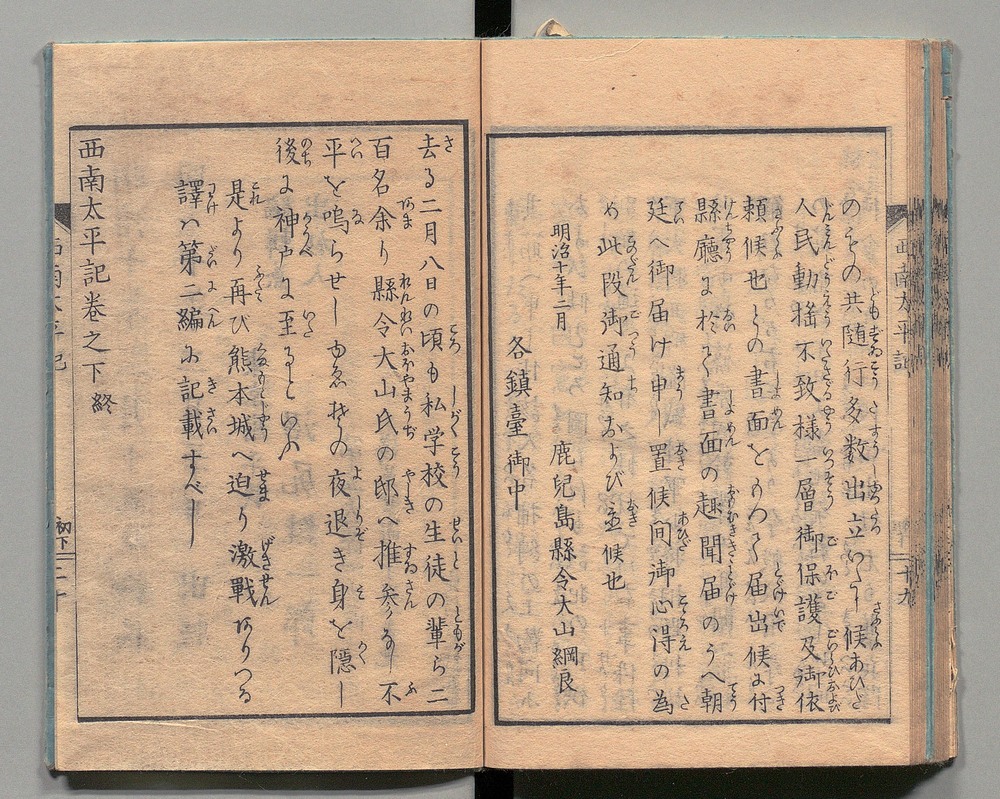 のもの共随行多数出立いたし候あひだ
人民動揺不致様一層御保護及御依
頼候也との書面をもつて届出候に付
縣廳に於て書面の趣聞届のうへ朝
廷へ御届け申し置候間御心得の為
め此段御通知および置候也
明治十年二月
鹿兒島縣令大山綱良
各鎮臺御中
西南太平記
十九
去る二月八日の頃も私学校の生徒の輩ら二
百名余り縣令大山氏の邸へ推参なし不
平を鳴らせしゆゑ其の夜退き身を隠し
後に神戸に至るといふ
是より再び熊本城へ迫り激戰ありつる
譯ハ第二編に記載すべし
西南太平記巻之下終
西南太平記
初下
二十